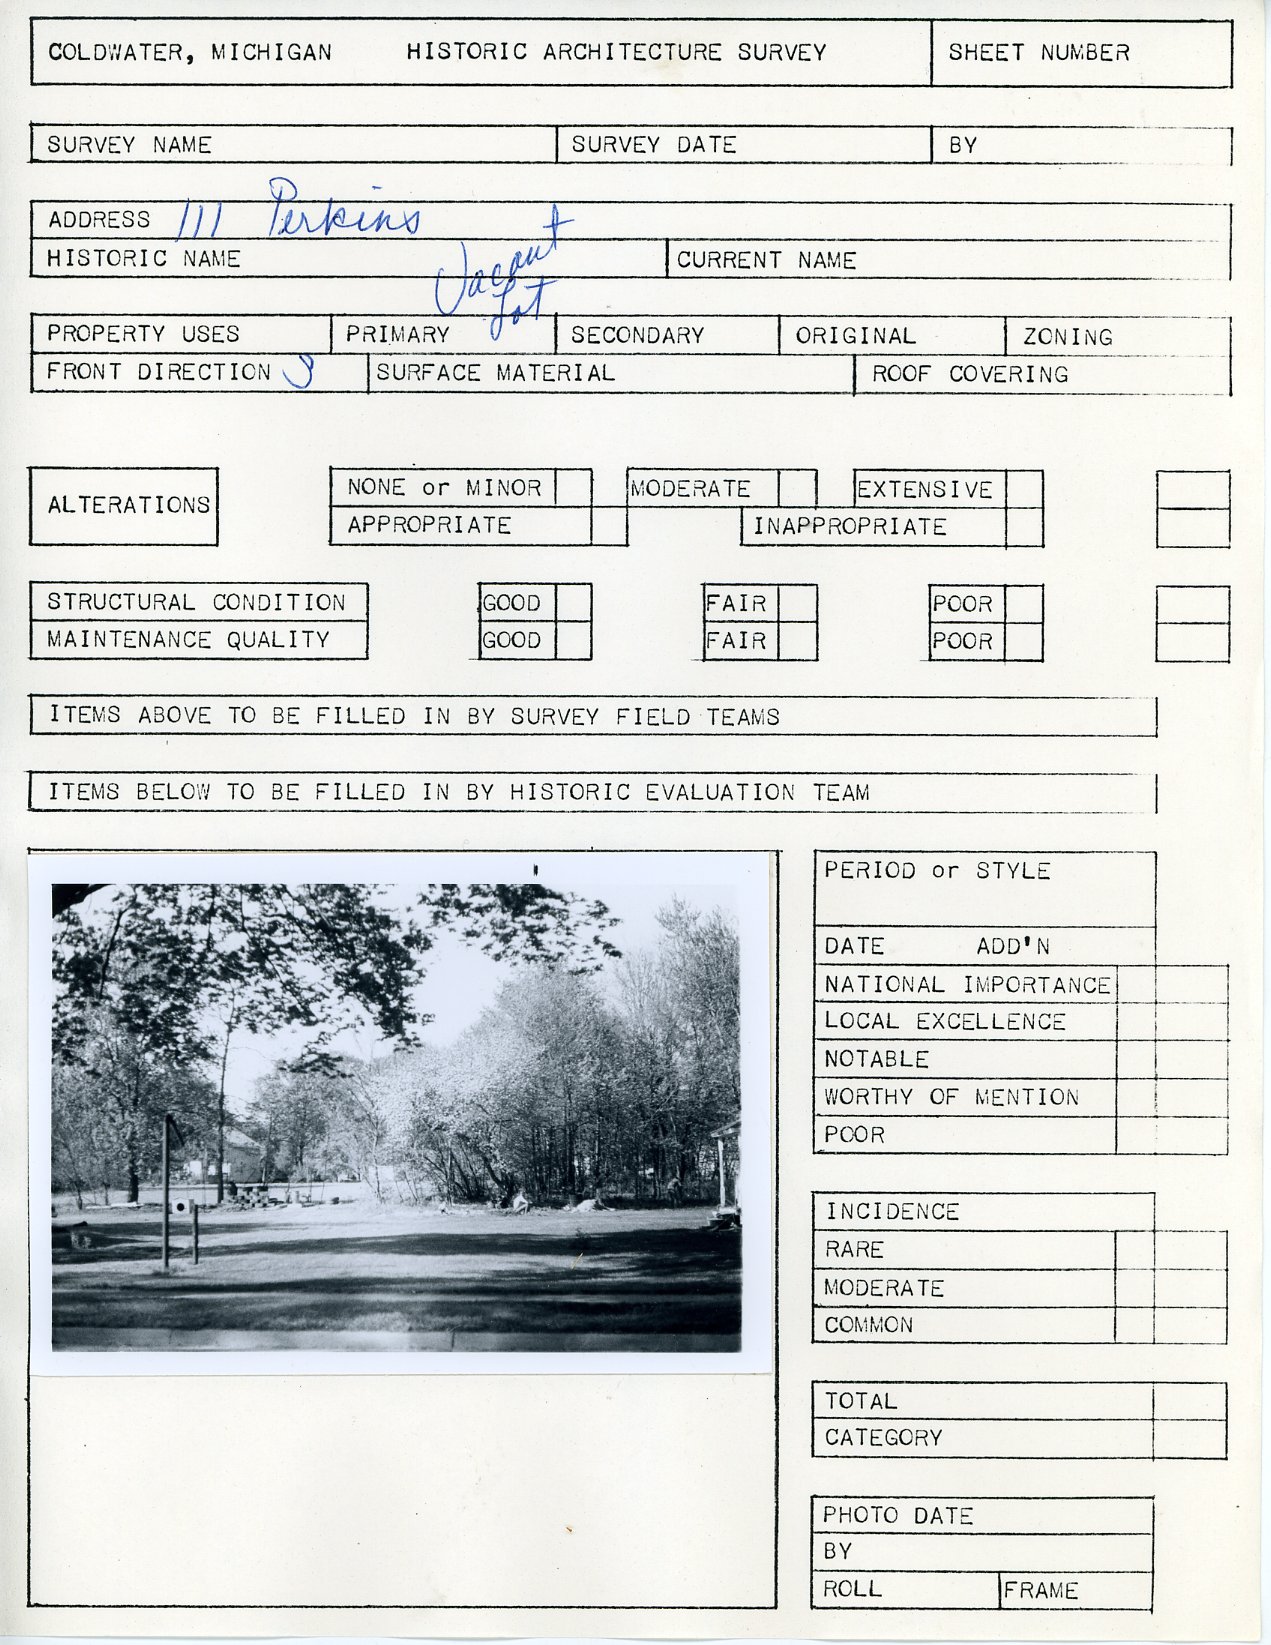 COLDWATER, MICHIGAN HISTORIC ARCHITECTURE SURVEY SHEET NUMBER
SURVEY NAME SURVEY DATE BY
ADDRESS 111 Perkins
HISTORIC NAME CURRENT NAME
Vacant
Lot
PROPERTY USES PRIMARY SECONDARY ORIGINAL ZONING
FRONT DIRECTION S SURFACE MATERIAL ROOF COVERING
ALTERATIONS
NONE or MINOR MODERATE EXTENSIVE
APPROPRIATE INAPPROPRIATE
STRUCTURAL CONDITION GOOD FAIR POOR
MAINTENANCE QUALITY GOOD FAIR POOR
ITEMS ABOVE TO BE FILLED IN BY SURVEY FIELD TEAMS
ITEMS BELOW TO BE FILLED IN BY HISTORIC EVALUATION TEAM
PERIOD or STYLE
DATE ADD'N
NATIONAL IMPORTANCE
LOCAL EXCELLENCE
NOTABLE
WORTHY OF MENTION
POOR
INCIDENCE
RARE
MODERATE
COMMON
TOTAL
CATEGORY
PHOTO DATE
BY
ROLL FRAME